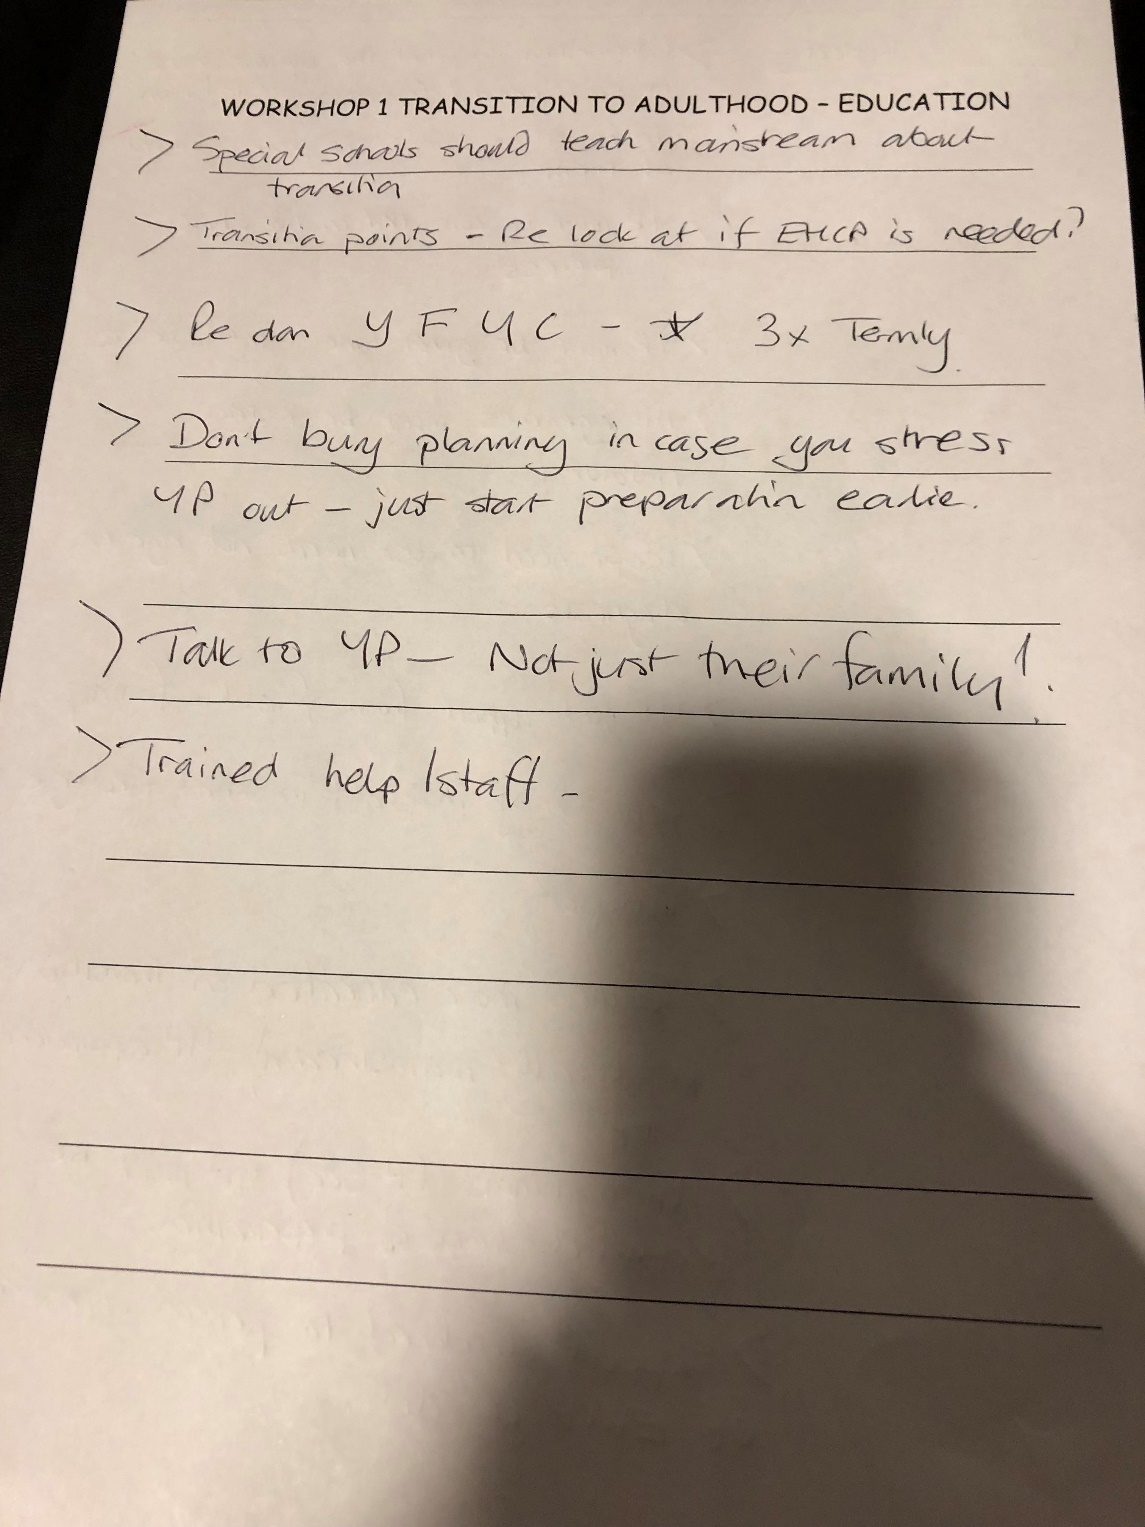 WORKSHOP 1 TRANSITION TO ADULTHOOD - EDUCATION
> Special schools should teach mainstream about
transition
> Transition points - Re look at if EHCP is needed?
> Re do YFYC - * 3x Termly.
> Don't bury planning in case you stress
YP out - just start preparation earlier.
> Talk to YP - Not just their family!.
> Trained help/staff -